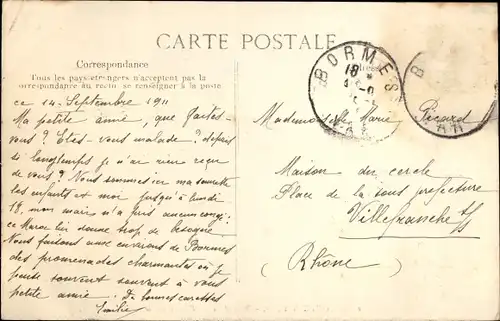 CARTE POSTALE
Correspondance
Tous les pays étrangers n'acceptent pas la
correspondance au recto se renseigner à la poste
ce 14 - Septembre 1911
Ma petite amie, que faites-
vous? Êtes-vous malade? depuis
si longtemps je n'ai rien reçu
de vous? Nous sommes ici ma
les enfants et moi jusqu'à lundi
18, mon mari n'a pris aucun congé;
ce Maroc lui donne trop de besogne
Nous faisons aux environs de Bormes
des promenades charmantes où je
pense souvent souvent à vous
petite amie. De bonnes caresses
Emilie
BORMES
18
B
VAR
Mademoiselle Marie Picard
Maison du cercle
Place de la sous prefecture
Villefranche s/S
(Rhône)